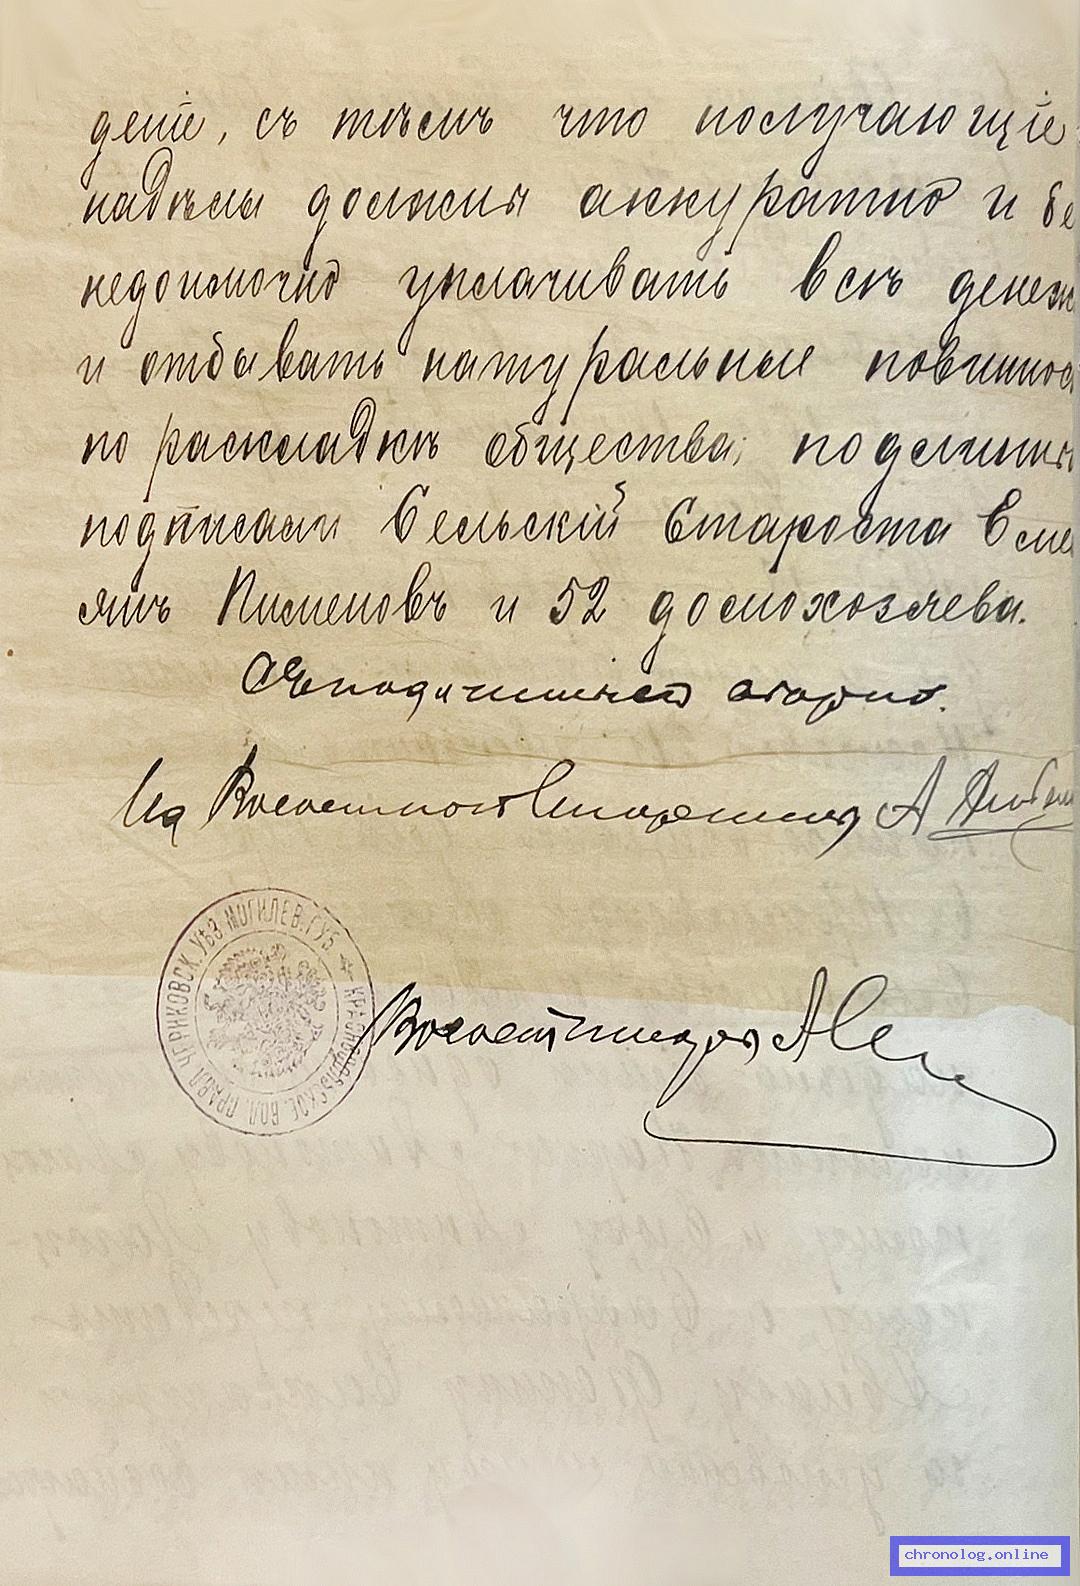 деніе, съ тѣмъ что получающіе
надѣлы должны аккуратно и бе
недоимочно уплачивать всѣ денеж
и отбывать натуральные повиннос
по раскладкѣ общества; подлинны
подписали Сельскій Староста Емел
янъ Пименовъ и 52 домохозяева.
Съ подлиннымъ вѣрно.
За Волостного Старшину А
Волост писарь А
ЧЕРИКОВСК. УѢЗ. МОГИЛЕВ. ГУБ. КРАСНОПОЛЬСКОЕ ВОЛ. ПРАВЛ.
chronolog.online